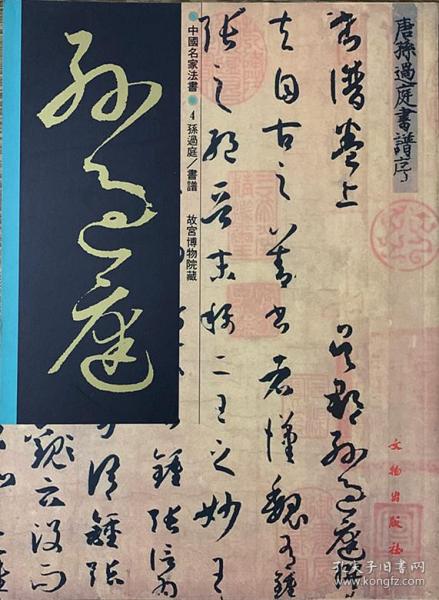 唐孫過庭書譜序
書譜卷上 吳郡孫過庭
夫自古之善書者漢魏有鍾
張之絕晉末稱二王之妙王
鍾張信為
謂鍾張
云沒而
中國名家法書 4 孫過庭/書譜 故宮博物院藏
孫過庭
文物出版社
孔夫子旧书网
www.kongfz.com